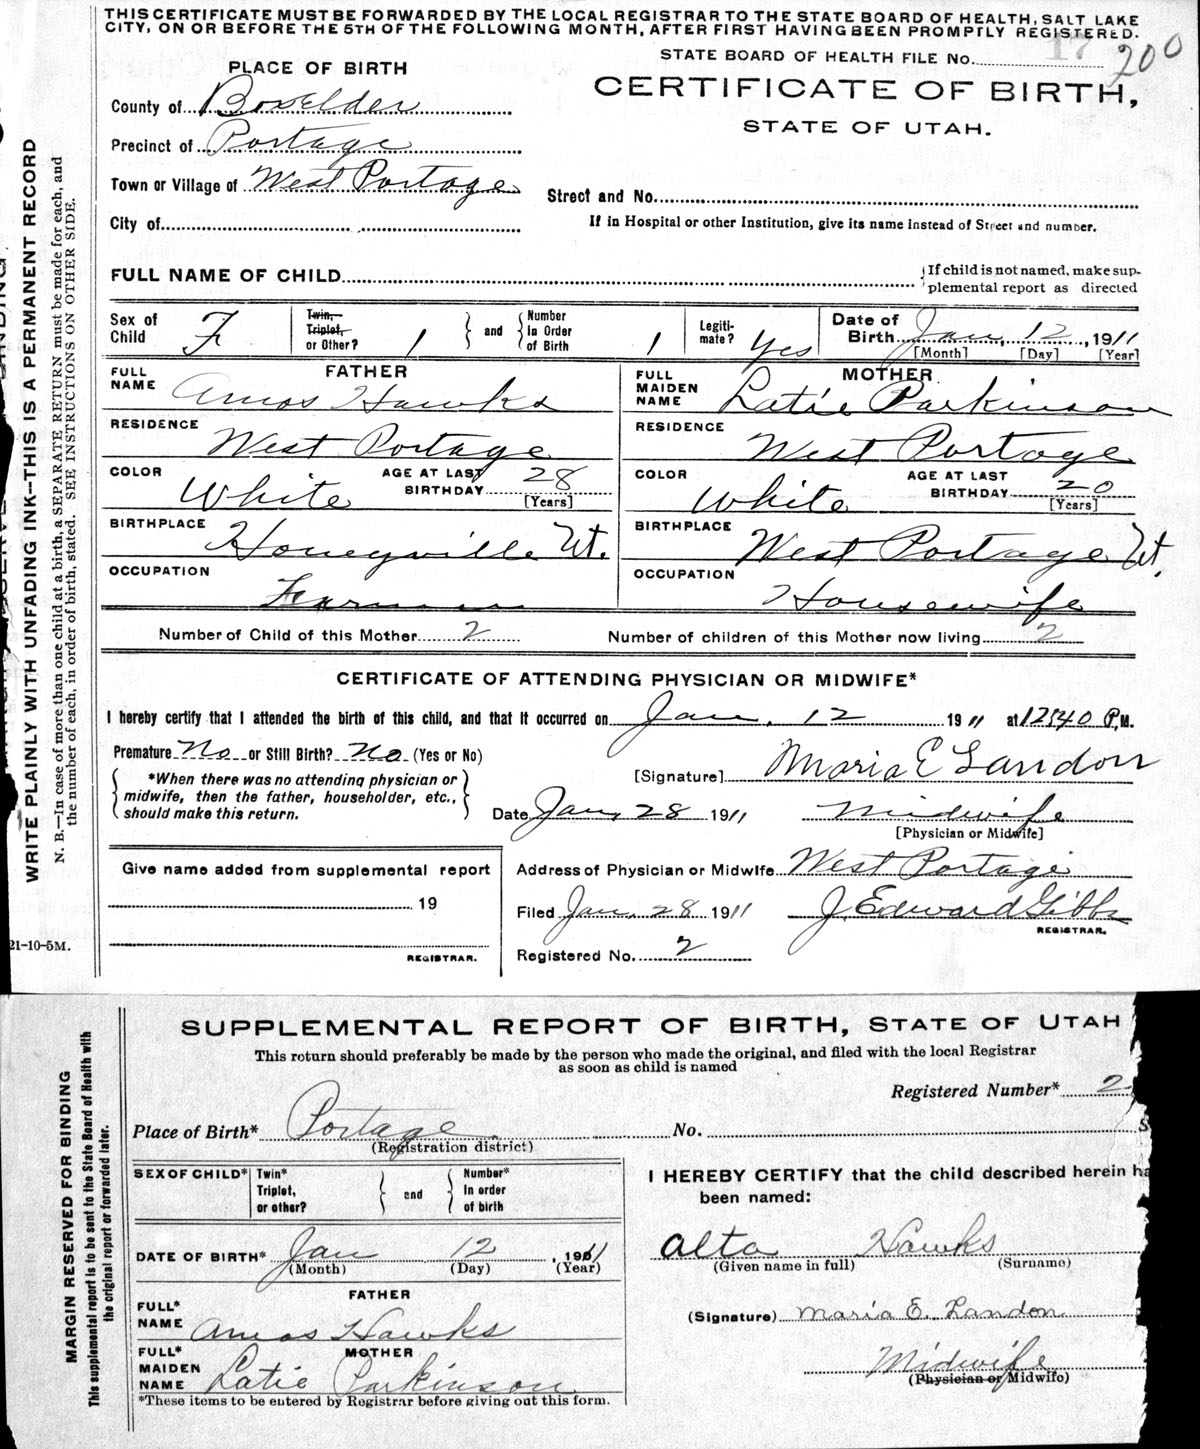 THIS CERTIFICATE MUST BE FORWARDED BY THE LOCAL REGISTRAR TO THE STATE BOARD OF HEALTH, SALT LAKE
CITY, ON OR BEFORE THE 5TH OF THE FOLLOWING MONTH, AFTER FIRST HAVING BEEN PROMPTLY REGISTERED.
STATE BOARD OF HEALTH FILE No. 17 200
PLACE OF BIRTH
CERTIFICATE OF BIRTH,
STATE OF UTAH.
County of Boxelder
Precinct of Portage
Town or Village of West Portage
Street and No.
City of
If in Hospital or other Institution, give its name instead of Street and number.
FULL NAME OF CHILD
If child is not named, make sup-
plemental report as directed
Sex of Child F
Twin, Triplet, or Other? 1 and Number In Order of Birth 1
Legiti-mate? Yes
Date of Birth Jan, 12, 1911
[Month] [Day] [Year]
FATHER
FULL NAME Amos Hawks
RESIDENCE West Portage
COLOR White AGE AT LAST BIRTHDAY 28 [Years]
BIRTHPLACE Honeyville Ut.
OCCUPATION Farmer
MOTHER
FULL MAIDEN NAME Latie Parkinson
RESIDENCE West Portage
COLOR White AGE AT LAST BIRTHDAY 20 [Years]
BIRTHPLACE West Portage Ut.
OCCUPATION Housewife
Number of Child of this Mother 2 Number of children of this Mother now living 2
CERTIFICATE OF ATTENDING PHYSICIAN OR MIDWIFE*
I hereby certify that I attended the birth of this child, and that it occurred on Jan, 12 1911 at 12:40 P.M.
Premature No or Still Birth? No (Yes or No)
*When there was no attending physician or
midwife, then the father, householder, etc.,
should make this return.
[Signature] Maria E Landon
Date Jan, 28 1911 Midwife
[Physician or Midwife]
Give name added from supplemental report
19
REGISTRAR.
Address of Physician or Midwife West Portage
Filed Jan, 28 1911 J. Edward Gibbs
REGISTRAR.
Registered No. 2
WRITE PLAINLY WITH UNFADING INK—THIS IS A PERMANENT RECORD
N. B.—In case of more than one child at a birth, a SEPARATE RETURN must be made for each, and
the number of each, in order of birth, stated. SEE INSTRUCTIONS ON OTHER SIDE.
21-10-5M.
SUPPLEMENTAL REPORT OF BIRTH, STATE OF UTAH
This return should preferably be made by the person who made the original, and filed with the local Registrar
as soon as child is named
Registered Number* 2
Place of Birth* Portage No.
(Registration district)
SEX OF CHILD* Twin* Triplet, or other? and Number* In order of birth
DATE OF BIRTH* Jan 12, 1911
(Month) (Day) (Year)
FATHER
FULL* NAME Amos Hawks
MOTHER
FULL* MAIDEN NAME Latie Parkinson
*These items to be entered by Registrar before giving out this form.
I HEREBY CERTIFY that the child described herein ha
been named:
Alta Hawks
(Given name in full) (Surname)
(Signature) Maria E. Landon
Midwife
(Physician or Midwife)
MARGIN RESERVED FOR BINDING
This supplemental report is to be sent to the State Board of Health with
the original report or forwarded later.